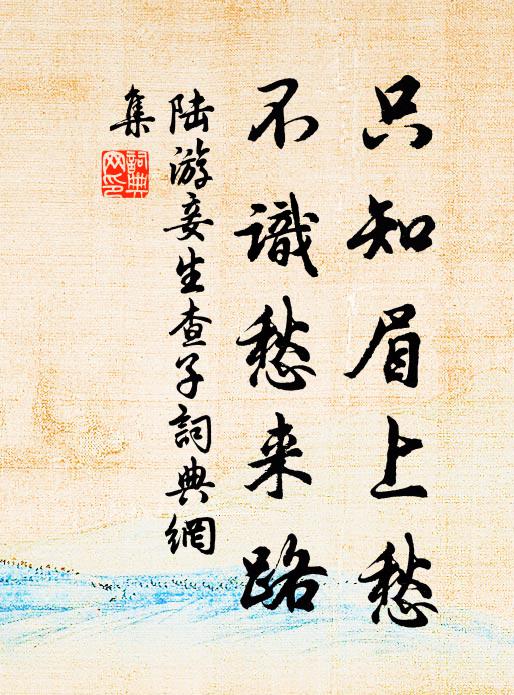 只知眉上愁
不識愁来路
陆游妾生查子詞典網
集
詞典網印